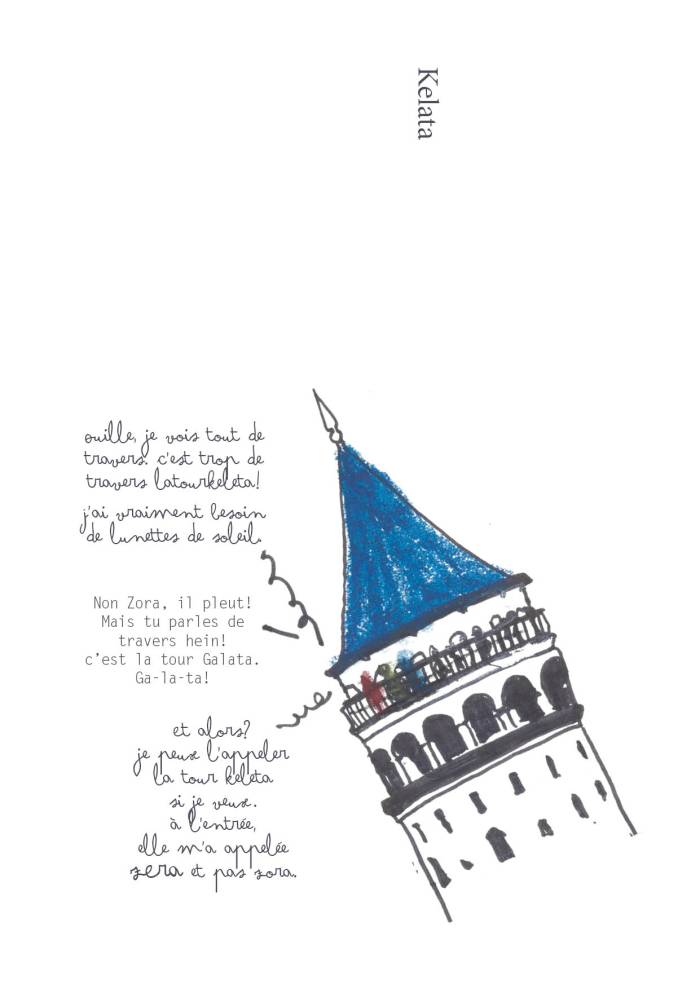 Kelata
ouille, je vois tout de
travers. c'est trop de
travers latourkeleta!
j'ai vraiment besoin
de lunettes de soleil.
Non Zora, il pleut!
Mais tu parles de
travers hein!
c’est la tour Galata.
Ga-la-ta!
et alors?
je peux l'appeler
la tour keleta
si je veux.
à l'entrée,
elle m'a appelée
zera et pas zora.